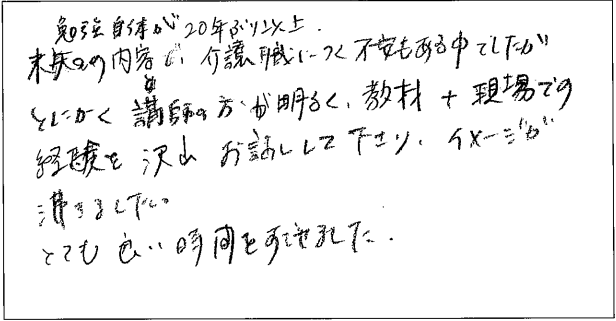 勉強自体が20年ぶり以上.
未知の内容で、介護職につく不安もある中でしたが
とにかく講師の方が明るく、教材+現場での
経験を沢山お話しして下さり、イメージが
沸きました。
とても良い時間を過せました.